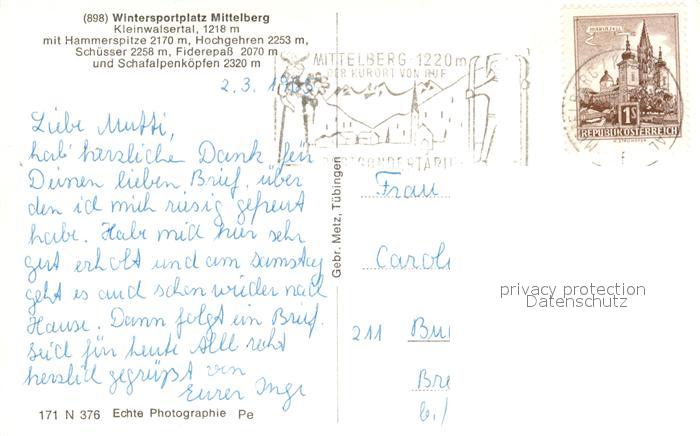 (898) Wintersportplatz Mittelberg
Kleinwalsertal, 1218 m
mit Hammerspitze 2170 m, Hochgehren 2253 m,
Schüsser 2258 m, Fiderepaß 2070 m
und Schafalpenköpfen 2320 m
MITTELBERG 1220m
DER KURORT VON RUF
MARIAZELL
1S
REPUBLIK ÖSTERREICH
2.3.
Liebe Mutti,
hab' herzlichen Dank für
Deinen lieben Brief, über
den ich mich riesig gefreut
habe. Habe mich hier sehr
gut erholt und am Samstag
geht es auch schon wieder nach
Hause. Dann folgt ein Brief.
Seid für heute All recht
herzlich gegrüßt von
Eurer Inge
Gebr. Metz, Tübingen
Frau
Carol
privacy protection
Datenschutz
211 Bu
Bre
b./
171 N 376 Echte Photographie Pe